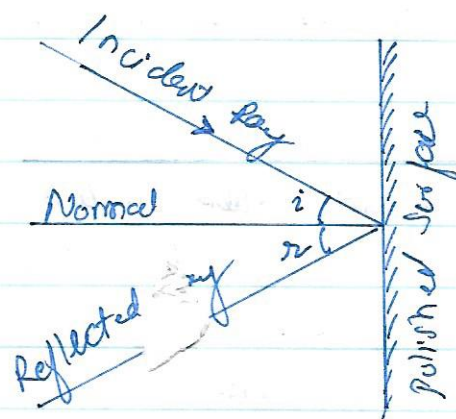 Incident Ray
Normal
i
r
Reflected
polished surface